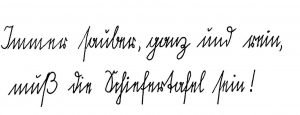 Immer sauber, ganz und rein,
muß die Schiefertafel sein!